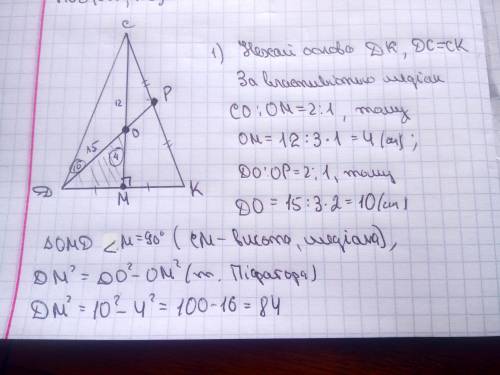 C
12
P
15
O
10
4
D
M
K
1) Нехай основа DK, DC=CK
За властивістю медіан
CO:OM=2:1, тому
OM=12:3·1=4(см);
DO:OP=2:1, тому
DO=15:3·2=10(см)
ΔOMD ∠M=90° (CM-висота, медіана),
DM²=DO²-OM² (т. Піфагора)
DM²=10²-4²=100-16=84